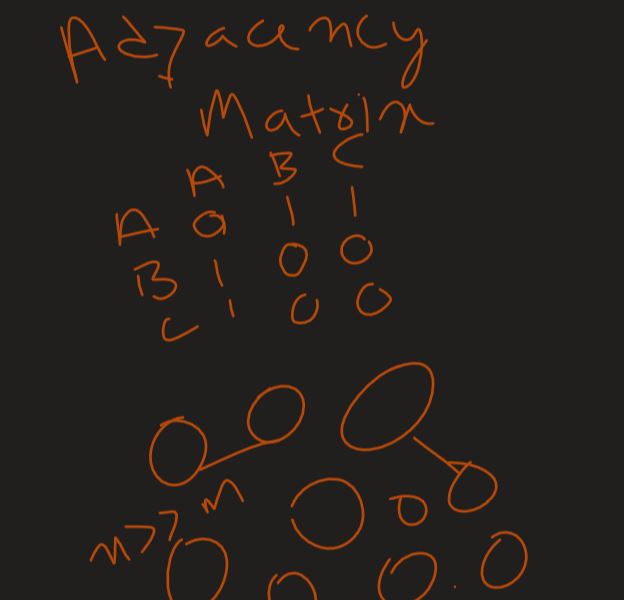 Adjacency
Matrix
A B C
A 0 1 1
B 1 0 0
C 1 0 0
n >> m